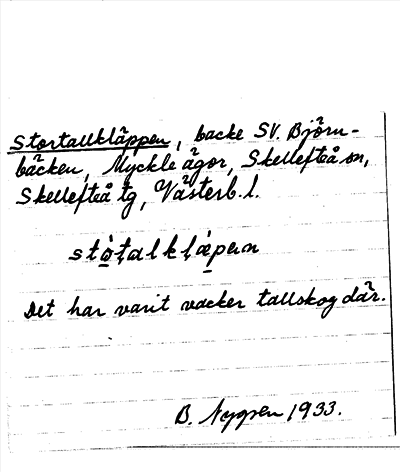 Stortallkläppen, backe SV. Björn-
bäcken, Myckle ägor, Skellefteå sn,
Skellefteå tg, Västerb. l.
stò̱ṭalkḷæ̱pɐn
Det har varit vacker tallskog där.
B. Nygren 1933.